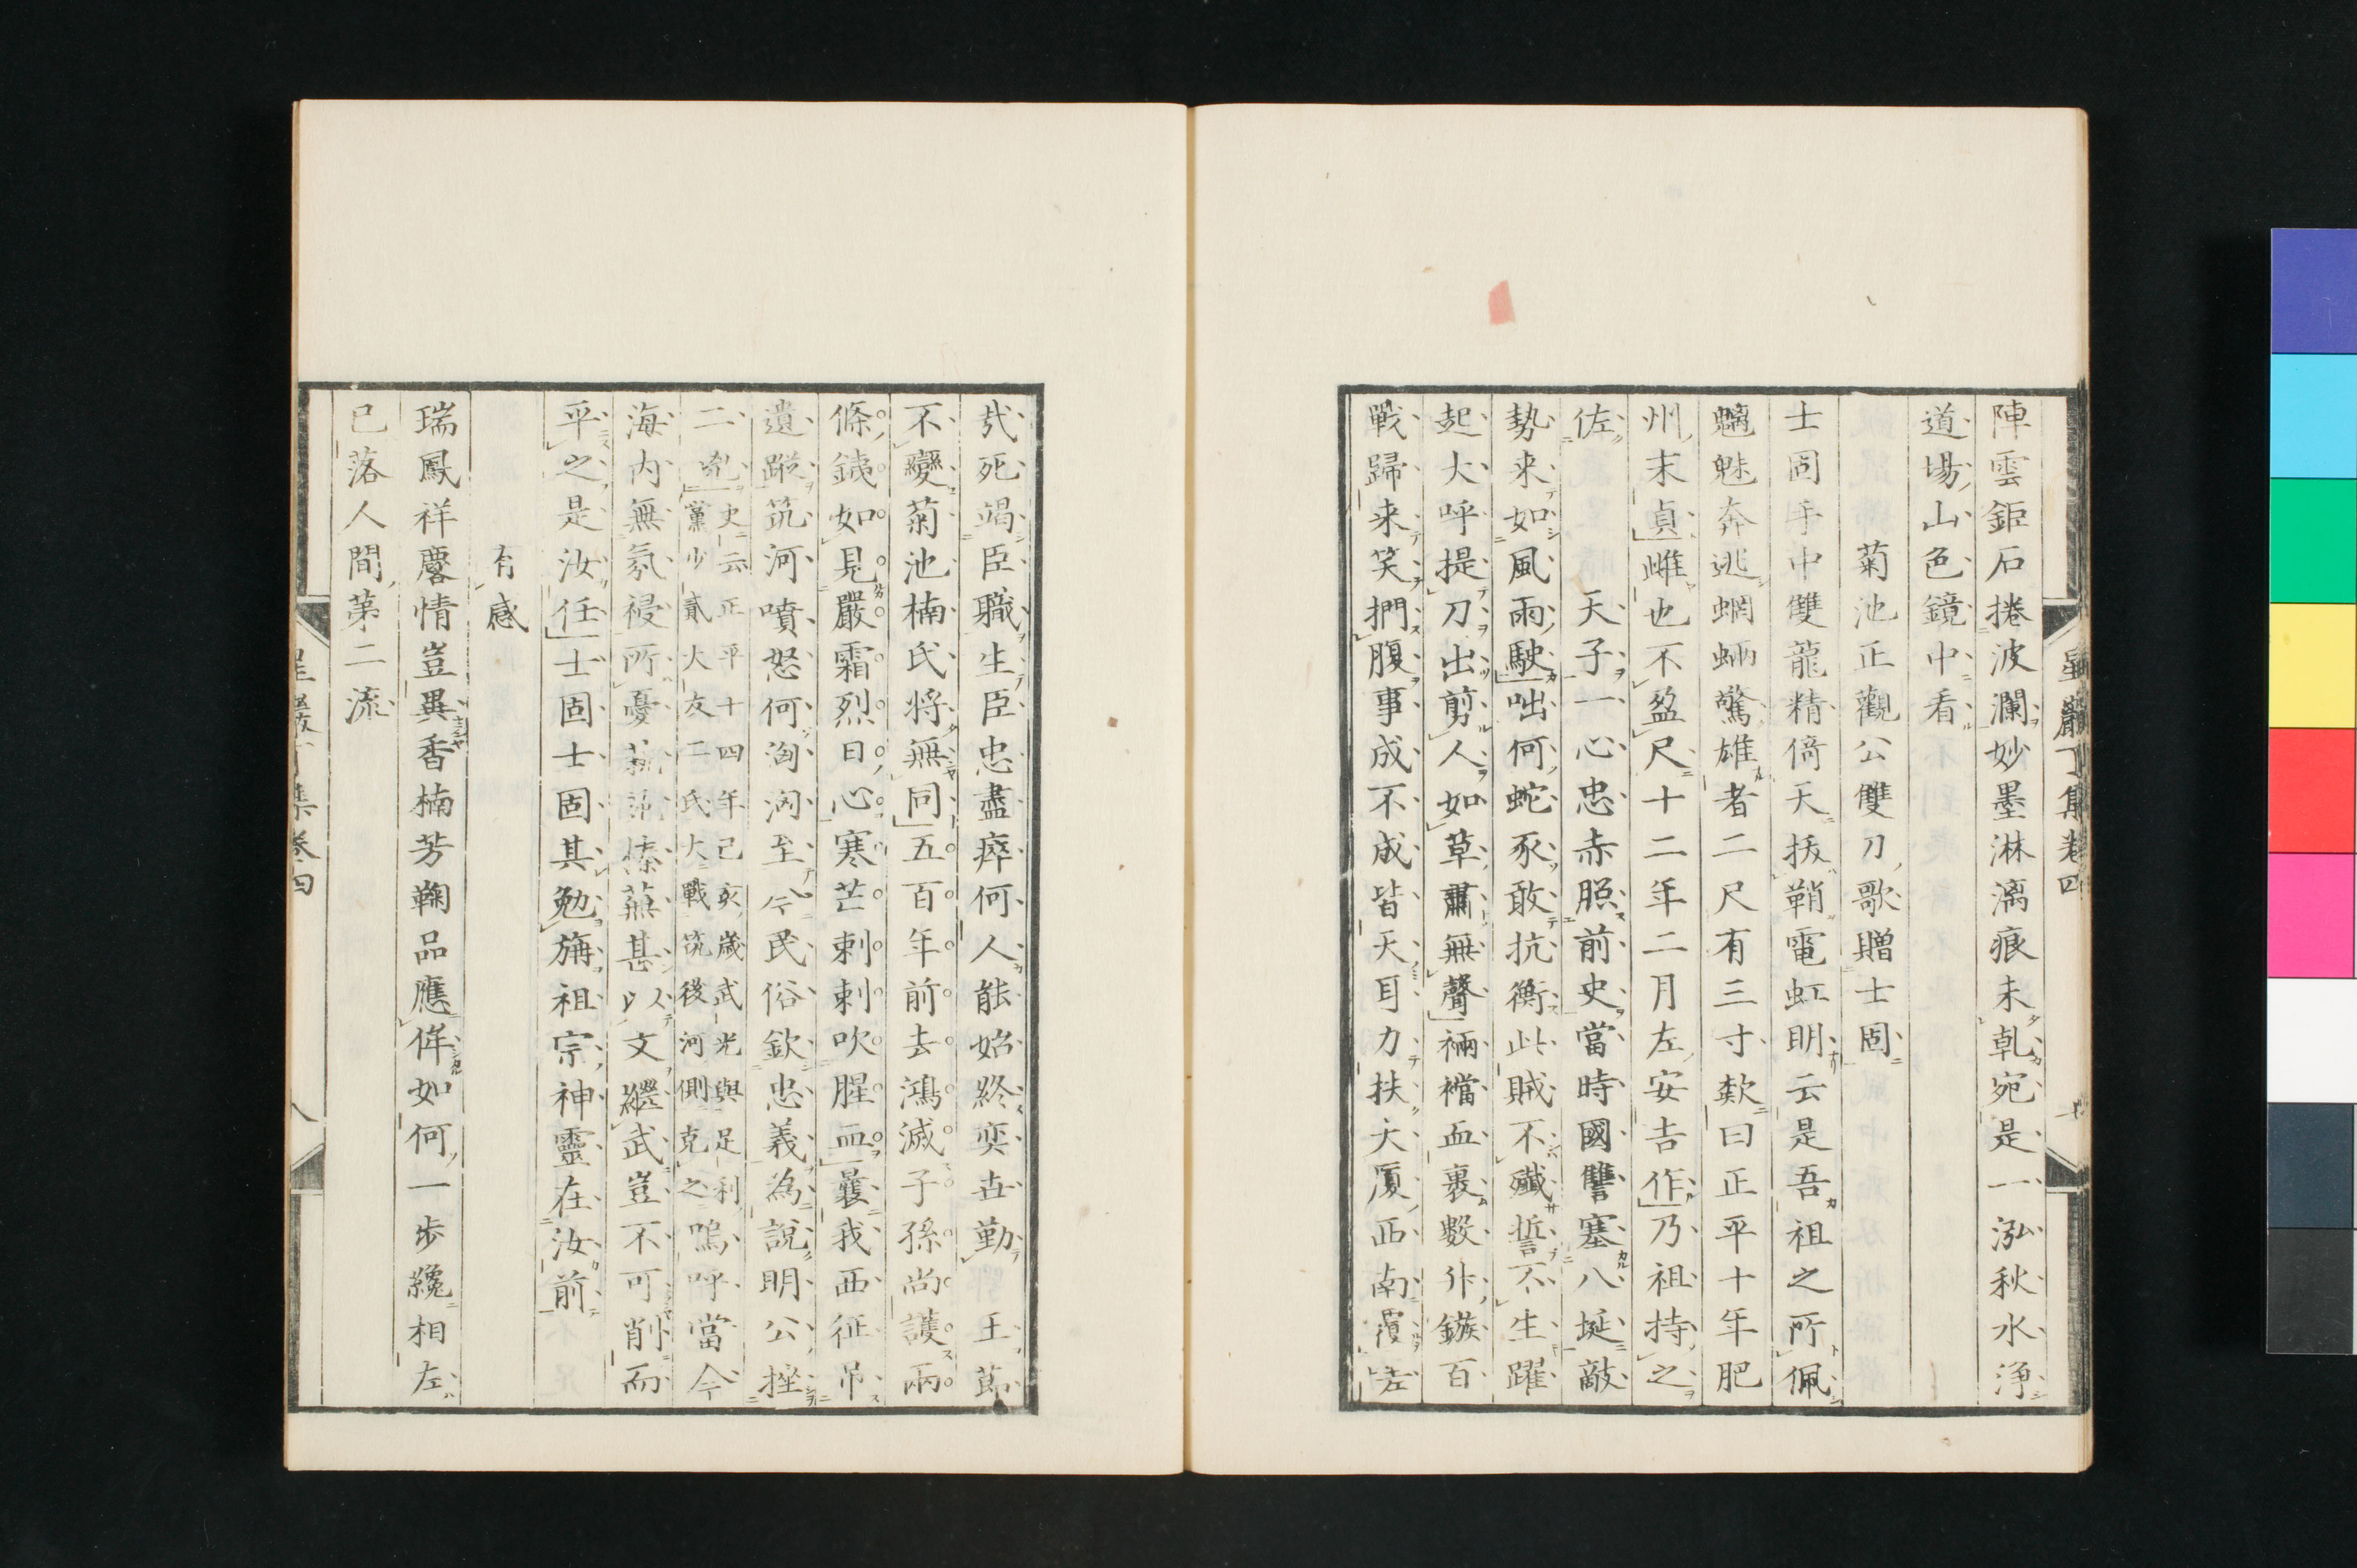 陣雲鉅石捲波瀾妙墨淋漓痕未乾宛是一泓秋水淨
道場山色鏡中看
菊池正觀公雙刀歌贈士固
士固手中雙龍精倚天拔鞘電虹明云是吾祖之所佩
魑魅奔逃蝄蜽驚雄者二尺有三寸欵曰正平十年肥
州末貞雌也不盈尺十二年二月左安吉作乃祖持之
佐天子一心忠赤照前史當時國讐塞八埏敵
勢来如風雨駛咄何蛇豕敢抗衡此賊不殲誓不生躍
起大呼提刀出剪人如草肅無聲裲襠血裹數升鏃百
戰歸来笑捫腹事成不成皆天耳力扶大廈西南覆嗟
哉死竭臣職生臣忠盡瘁何人能始終奕世勤王節
不變菊池楠氏将無同五百年前去鴻滅子孫尚護兩
條銕如見嚴霜烈日心寒芒刺刺吹腥血曩我西征吊
遺蹤筑河噴怒何洶洶至今民俗欽忠義為說明公挫
二兇史云正平十四年己亥歳武光與足利
黨少貳大友二氏大戰筑後河側克之嗚呼當今
海内無氛祲所憂蓁蕪甚以文繼武豈不可削而
平之是汝任士固士固其勉旃祖宗神靈在汝前
有感
瑞鳳祥麐情豈異香楠芳鞠品應侔如何一歩纔相左
已落人間第二流
星巖丁集卷四
星巖丁集卷四